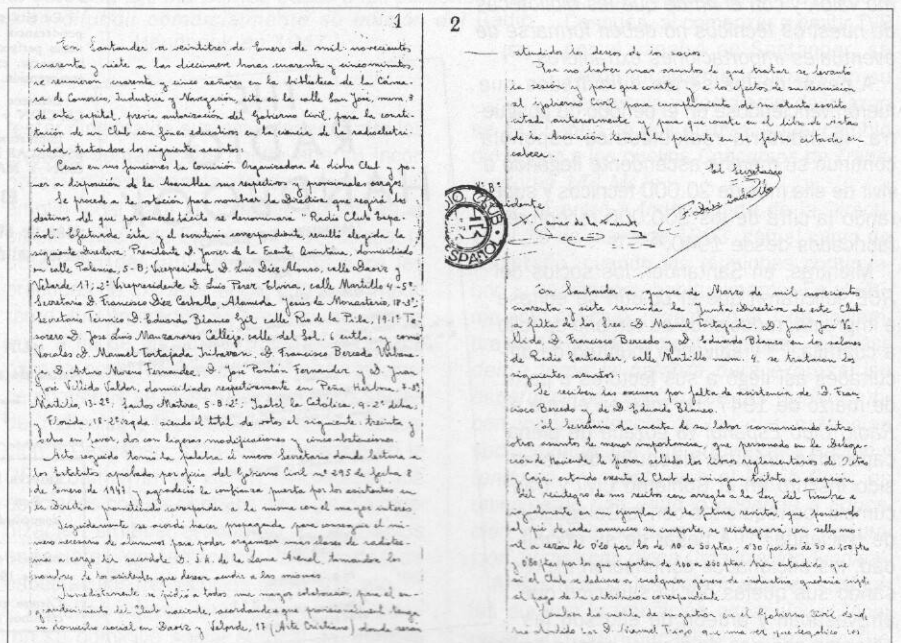 1
En Santander a veintitres de Enero de mil novecientos
cuarenta y siete a las diecinueve horas cuarenta y cinco minutos,
se reunieron cuarenta y cinco señores en la biblioteca de la Cáma-
ra de Comercio, Industria y Navegación, sita en la calle San José, num. 8
de esta capital, previa autorización del Gobierno Civil, para la consti-
tución de un Club con fines educativos en la ciencia de la radioelectri-
cidad, tratandose los siguientes asuntos.
Cesar en sus funciones la Comisión organizadora de dicho Club y po-
ner a disposición de la Asamblea sus respectivos cargos.
Se procede a la votación para nombrar la Directiva que regirá los
destinos del que por este hecho se denominará "Radio Club Espa-
ñol". Efectuada ésta y el escrutinio correspondiente, resultó elegida la
siguiente directiva: Presidente D. Javier de la Fuente Quintana, domiciliado
en calle Palencia, 5-B; Vicepresidente D. Luis Díez Alonso, calle Daoiz y
Velarde 17; 2º Vicepresidente D. Luis Perez Elvira, calle Martillo 4-5º;
Secretario D. Francisco Díez Carballo, Alameda Jesús de Monasterio, 18-3º;
Secretario Técnico D. Eduardo Blanco Gil, calle Rio de la Pila, 19-1º; Te-
sorero D. José Luis Manzanares Calleja, calle del Sol, 6 entlo.; y como
Vocales D. Manuel Tortajada D. Francisco Bercedo
D. Arturo Moreno Fernandez, D. José Pontón Fernandez y D. Juan
José Vellido domiciliados respectivamente en Peña Herbosa,
Martillo, 13-2º; Santos Martires, 5-B-2º; Isabel la Católica, 4-2º dcha.
y Florida, 18-2º izqda. siendo el total de votos el siguiente: treinta y
ocho en favor, dos con ligeras modificaciones y cinco abstenciones.
Acto seguido tomó la palabra el nuevo Secretario dando lectura a
los Estatutos aprobados por oficio del Gobierno Civil nº 295 de fecha 8
de Enero de 1947 y agradeció la confianza puesta por los asistentes en
la Directiva prometiendo corresponder a la misma con el mayor interés.
Seguidamente se acordó hacer propaganda para conseguir el nú-
mero necesario de alumnos para poder organizar unas clases de radiotec-
nia a cargo del sacerdote D. J.A. de la Lama Arenal, tomandose los
nombres de los asistentes que desean acudir a las mismas.
Inmediatamente se pidió a todos una mayor colaboración para el en-
grandecimiento del Club naciente, acordandose que provisionalmente tenga
su domicilio social en Daoiz y Velarde, 17 (Arte Cristiano) donde serán
2
atendidos los deseos de los socios.
Y no teniendo mas asuntos que tratar se levanta
la sesión y para que conste y a los efectos de su remisión
al Gobierno Civil para cumplimiento de
citado anteriormente y para que conste en el libro de actas
de la Asociación, extiendo la presente en la fecha citada en
Santander.
El Secretario
Díez Carballo
idente
RADIO CLUB ESPAÑOL
En Santander a quince de Marzo de mil novecientos
cuarenta y siete, reunida la Junta Directiva de este Club
a falta de los Sres. D. Manuel Tortajada, D. Juan José Ve-
llido, D. Francisco Bercedo y D. Eduardo Blanco, en los salones
de Radio Santander, calle Martillo num. 4, se trataron los
siguientes asuntos:
Se reciben las excusas por falta de asistencia de D. Fran-
cisco Bercedo y de D. Eduardo Blanco.
El Secretario da cuenta de su labor comunicando entre
otros asuntos de menor importancia que personado en la Delega-
ción de Hacienda le fueron sellados los libros reglamentarios de Actas
y Caja, estando exento el Club de ningun tributo a excepción
del reintegro de sus recibos con arreglo a la Ley del Timbre e
igualmente en cada ejemplar de la futura revista que llevando
al pié de cada anuncio su importe, se reintegrará con sello mó-
vil a razón de 0'20 por los de
y 0'80 ptas por los que importen de 100 a 250 ptas. No obstante lo que
si el Club se dedicase a cualquier género de industria, quedaría suje-
to al pago de la contribución correspondiente.
Tambien dá cuenta de su gestión en el Gobierno Civil donde
fué atendido por D. Manuel que una vez que